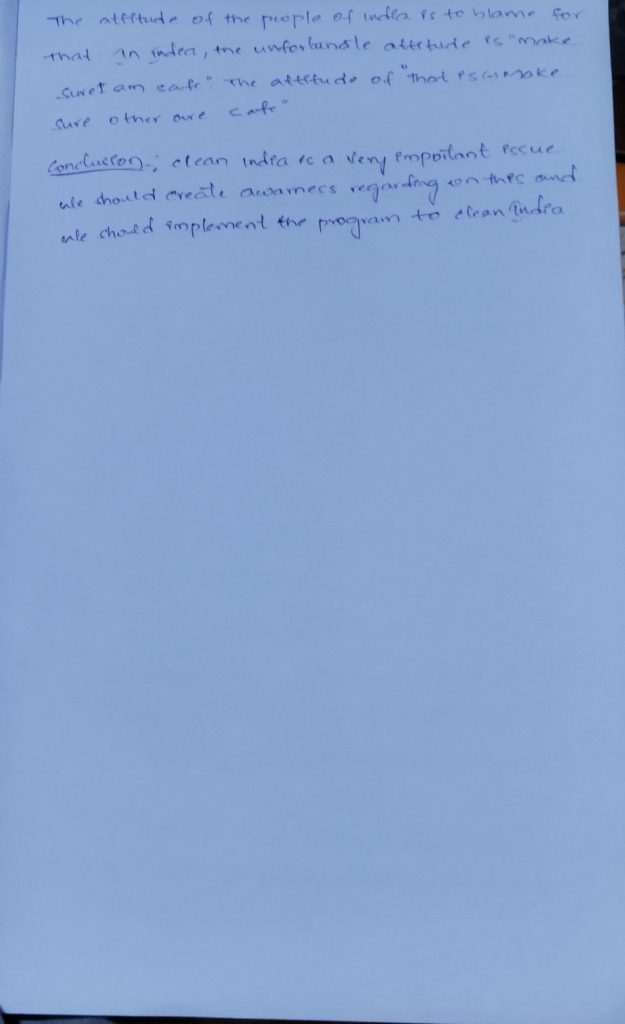 The attitude of the people of india is to blame for
that. In india, the unfortunate attitude is "make
sure I am safe". The attitude of "that is make
sure other are safe"
Conclusion:- clean india is a very important issue
we should create awarness regarding on this and
we should implement the program to clean india